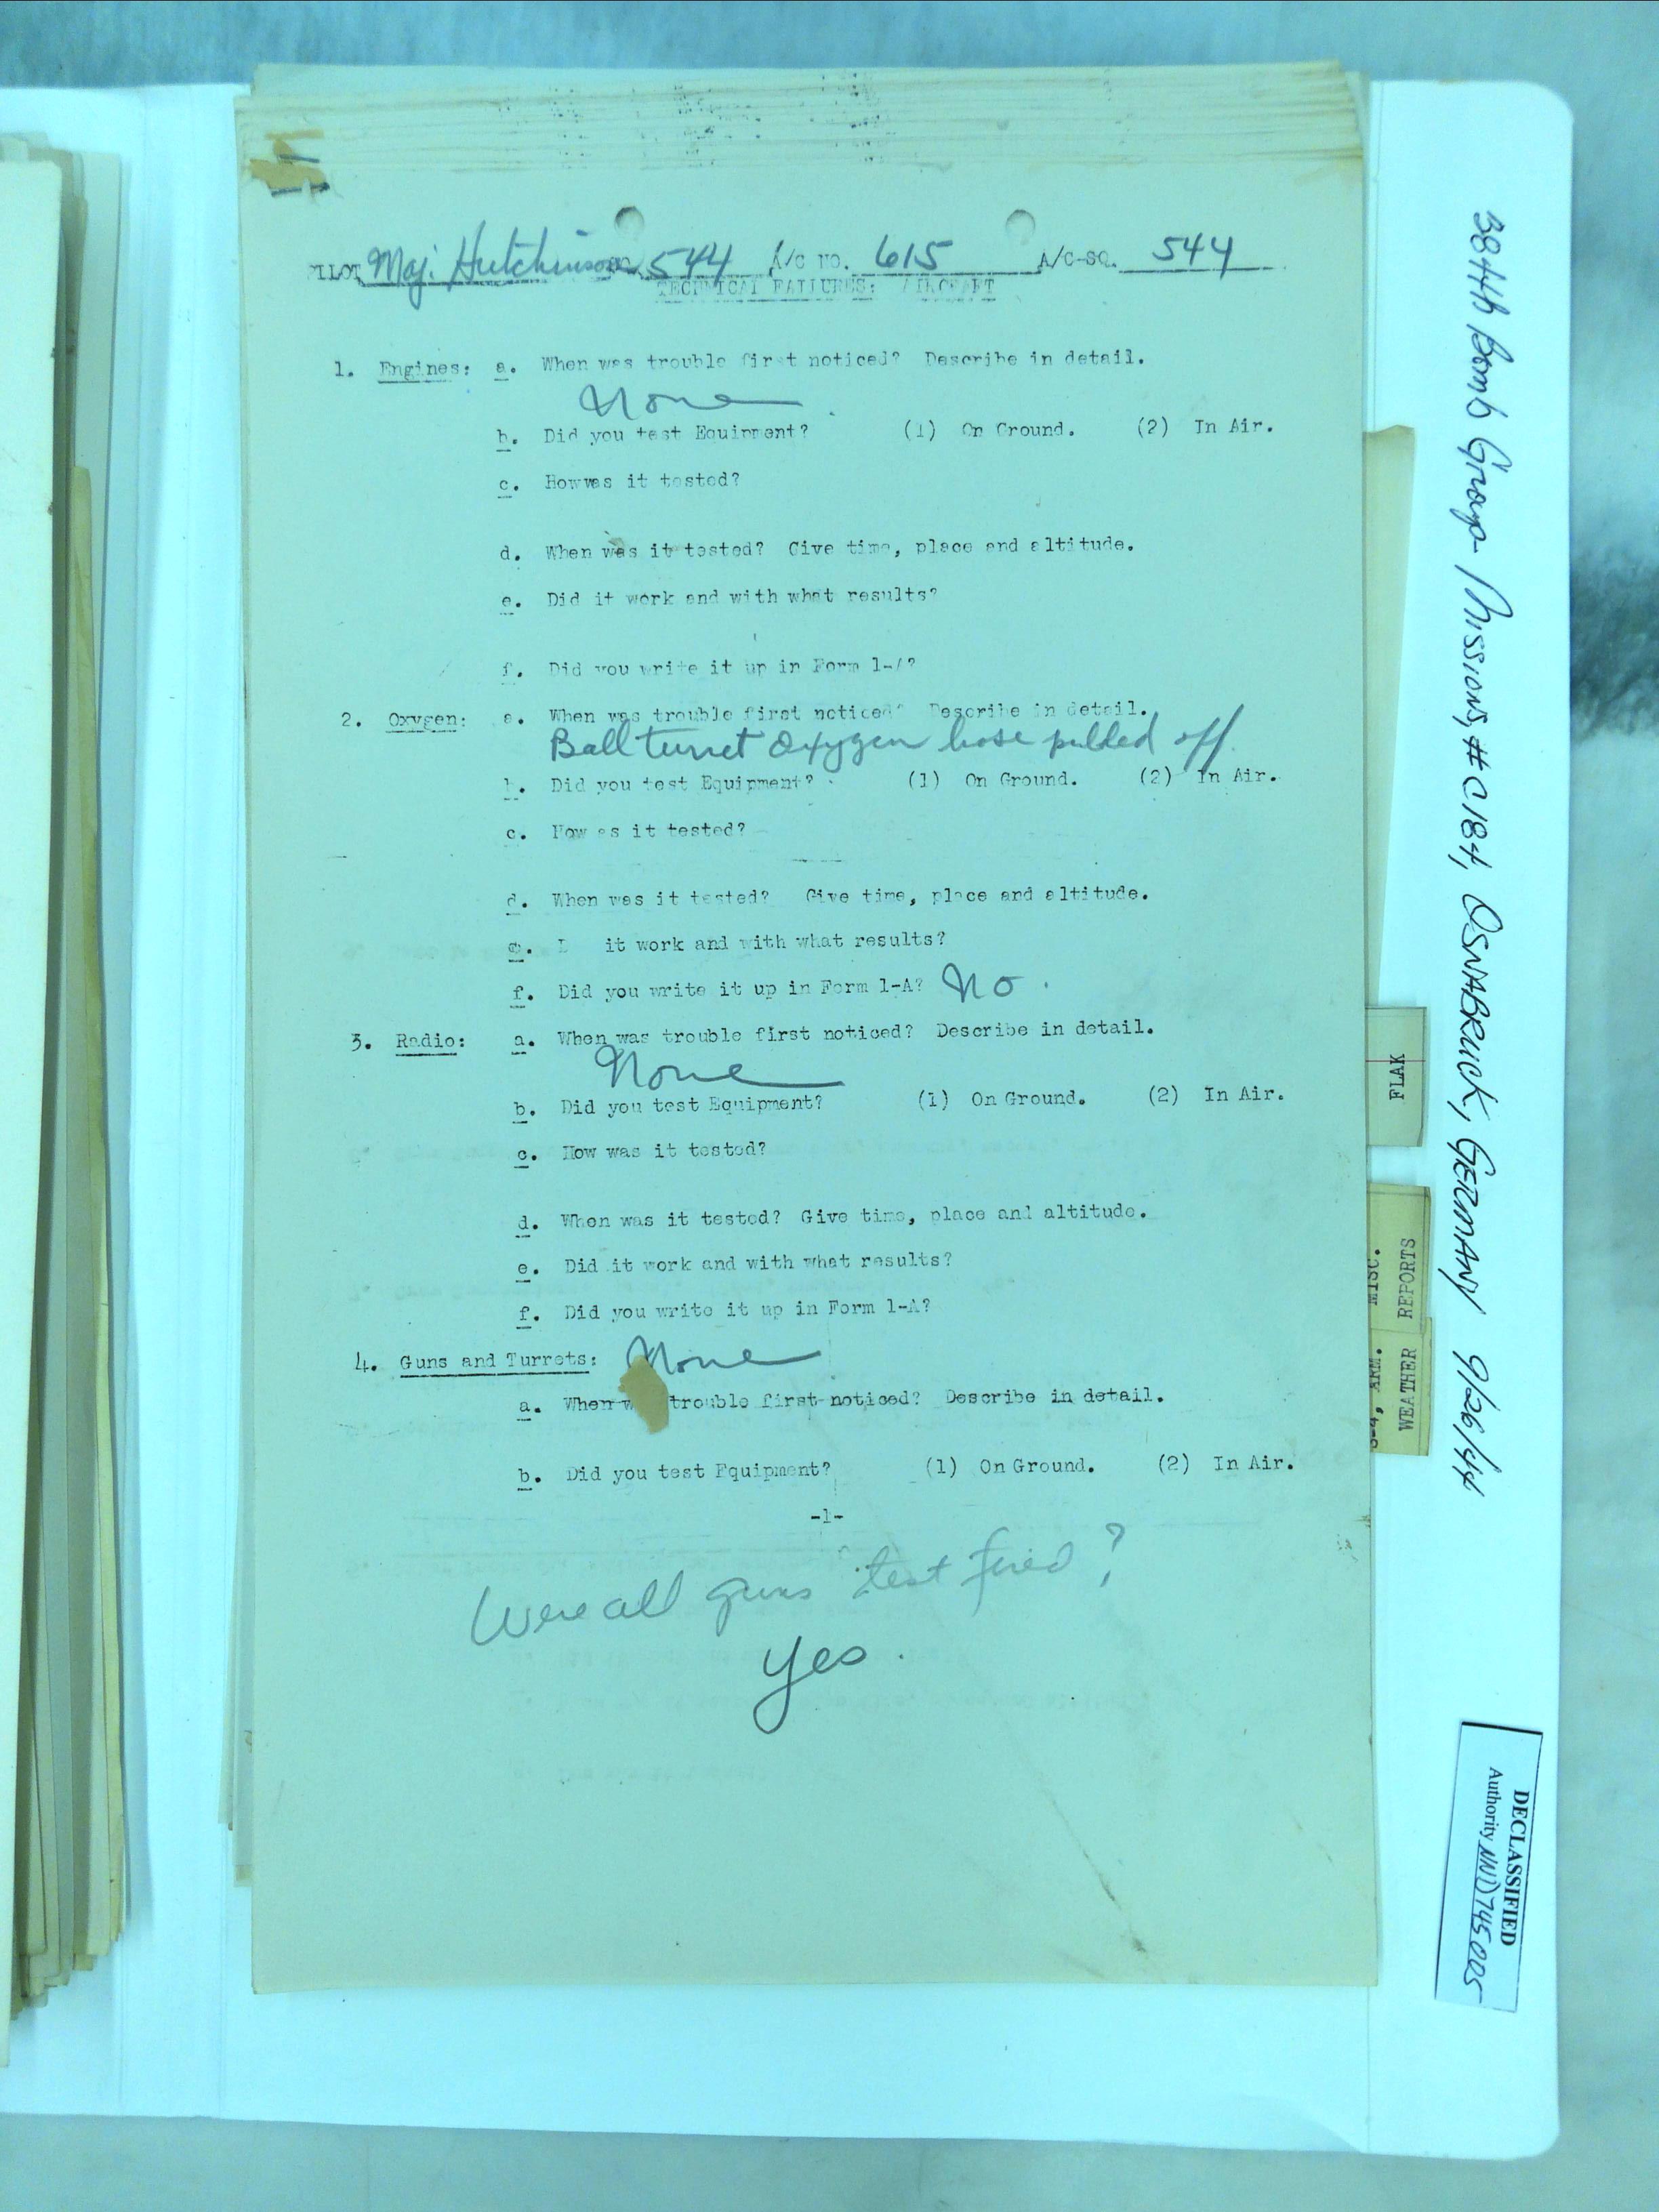 PILOT Maj. Hutchinson SQ. 544 A/C NO. 615 A/C-SQ. 544
TECHNICAL FAILURES: AIRCRAFT
1. Engines: a. When was trouble first noticed? Describe in detail.
None
b. Did you test Equipment? (1) On Ground. (2) In Air.
c. How was it tested?
d. When was it tested? Give time, place and altitude.
e. Did it work and with what results?
f. Did you write it up in Form 1-A?
2. Oxygen: a. When was trouble first noticed? Describe in detail.
Ball turret oxygen hose pulled off.
b. Did you test Equipment? (1) On Ground. (2) In Air.
c. How was it tested?
d. When was it tested? Give time, place and altitude.
e. it work and with what results?
f. Did you write it up in Form 1-A? No.
3. Radio: a. When was trouble first noticed? Describe in detail.
None
b. Did you test Equipment? (1) On Ground. (2) In Air.
c. How was it tested?
d. When was it tested? Give time, place and altitude.
e. Did it work and with what results?
f. Did you write it up in Form 1-A?
4. Guns and Turrets: None
a. When w trouble first noticed? Describe in detail.
b. Did you test Equipment? (1) On Ground. (2) In Air.
-1-
Were all guns test fired?
Yes.
FLAK
MISC. REPORTS
WEATHER
384th Bomb Group Missions, #C184, OSNABRUCK, GERMANY 9/26/44
DECLASSIFIED
Authority NND745005